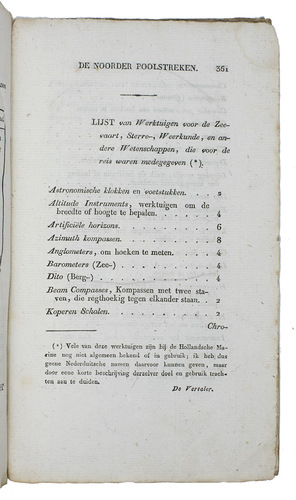 DE NOORDER POOLSTREKEN. 351
LIJST van Werktuigen voor de Zee-
vaart, Sterre-, Weerkunde, en an-
dere Wetenschappen, die voor de
reis waren medegegeven (*).
Astronomische klokken en voetstukken. . . 2
Altitude Instruments, werktuigen om de
breedte of hoogte te bepalen. . . . . . 4
Artificiële horizons. . . . . . . . 6
Azimuth kompassen. . . . . . . . 8
Anglometers, om hoeken te meten. . . . . 4
Barometers (Zee-) . . . . . . . . 4
Dito (Berg-) . . . . . . . . . 4
Beam Compasses, Kompassen met twee sta-
ven, die regthoekig tegen elkander staan. . 2
Koperen Schalen. . . . . . . . . 2
Chro-
(*) Vele van deze werktuigen zijn bij de Hollandsche Ma-
rine nog niet algemeen bekend of in gebruik; ik heb dus
geene Nederduitsche namen daarvoor kunnen geven, maar
door eene korte beschrijving derzelver doel en gebruik trach-
ten aan te duiden.
De Vertaler.